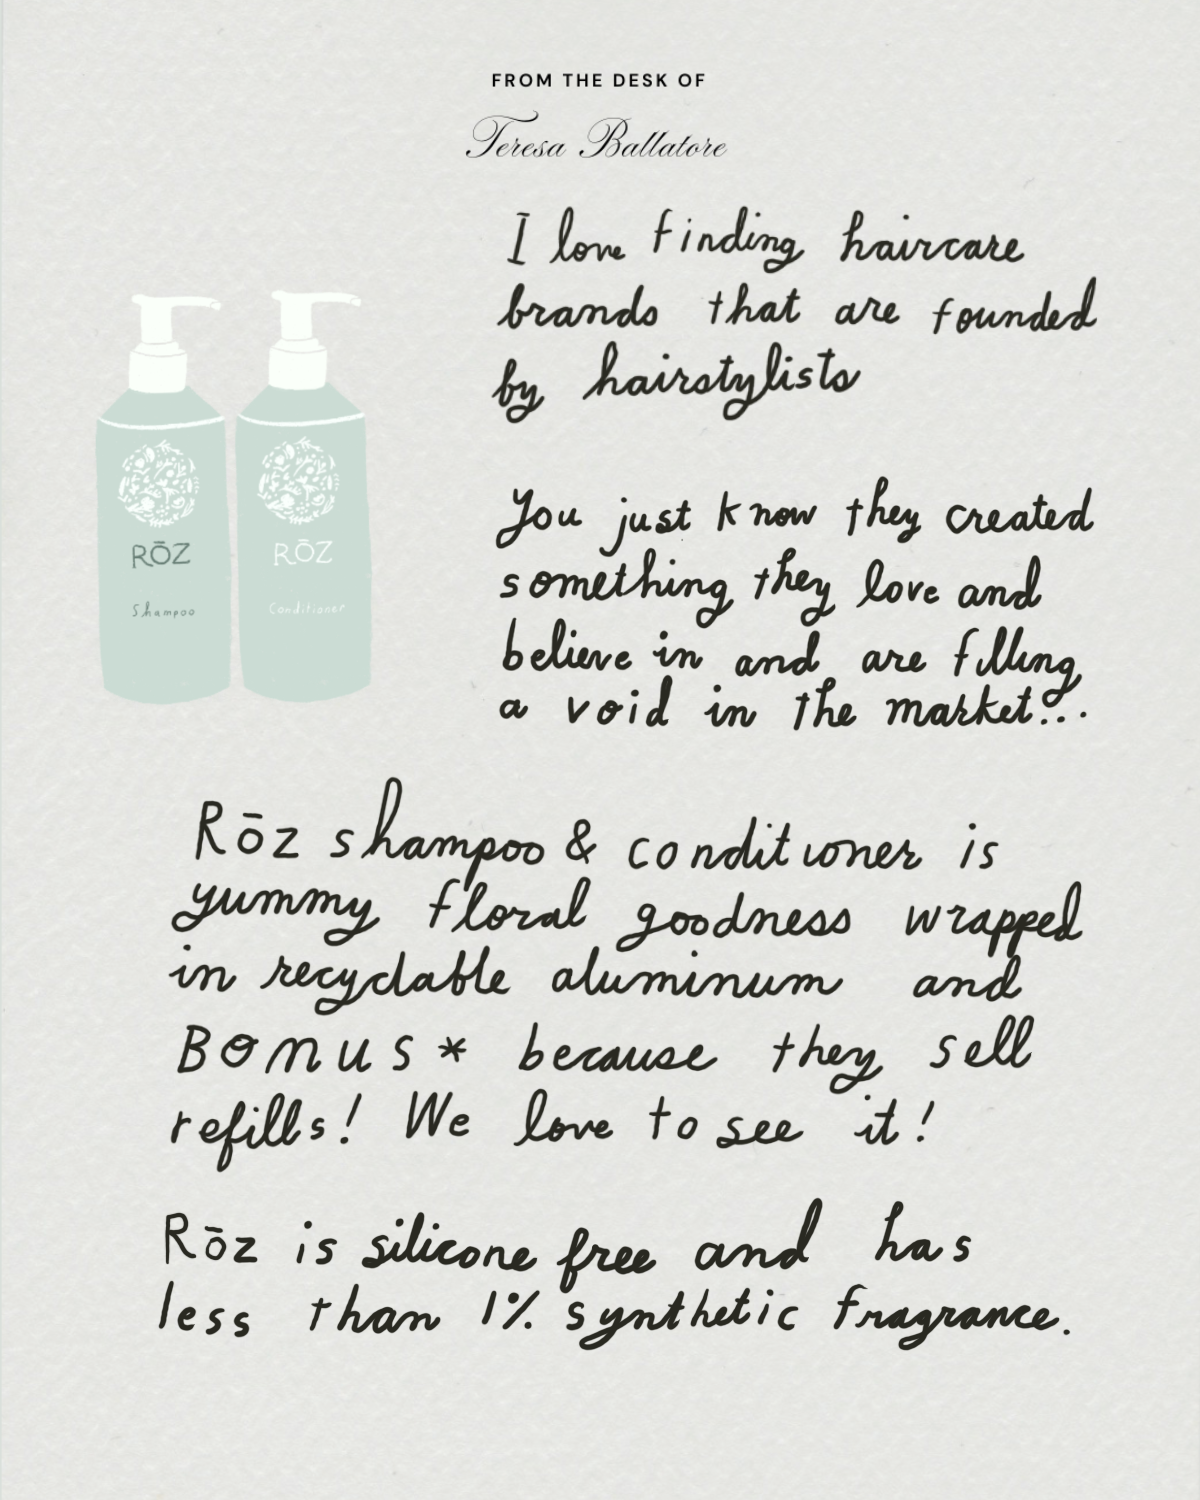 FROM THE DESK OF
Teresa Ballatore
I love finding haircare
brands that are founded
by hairstylists
You just know they created
something they love and
believe in and are filling
a void in the market...
RŌZ
Shampoo
RŌZ
Conditioner
Rōz shampoo & conditioner is
yummy floral goodness wrapped
in recyclable aluminum and
BONUS* because they sell
refills! We love to see it!
Rōz is silicone free and has
less than 1% synthetic fragrance.